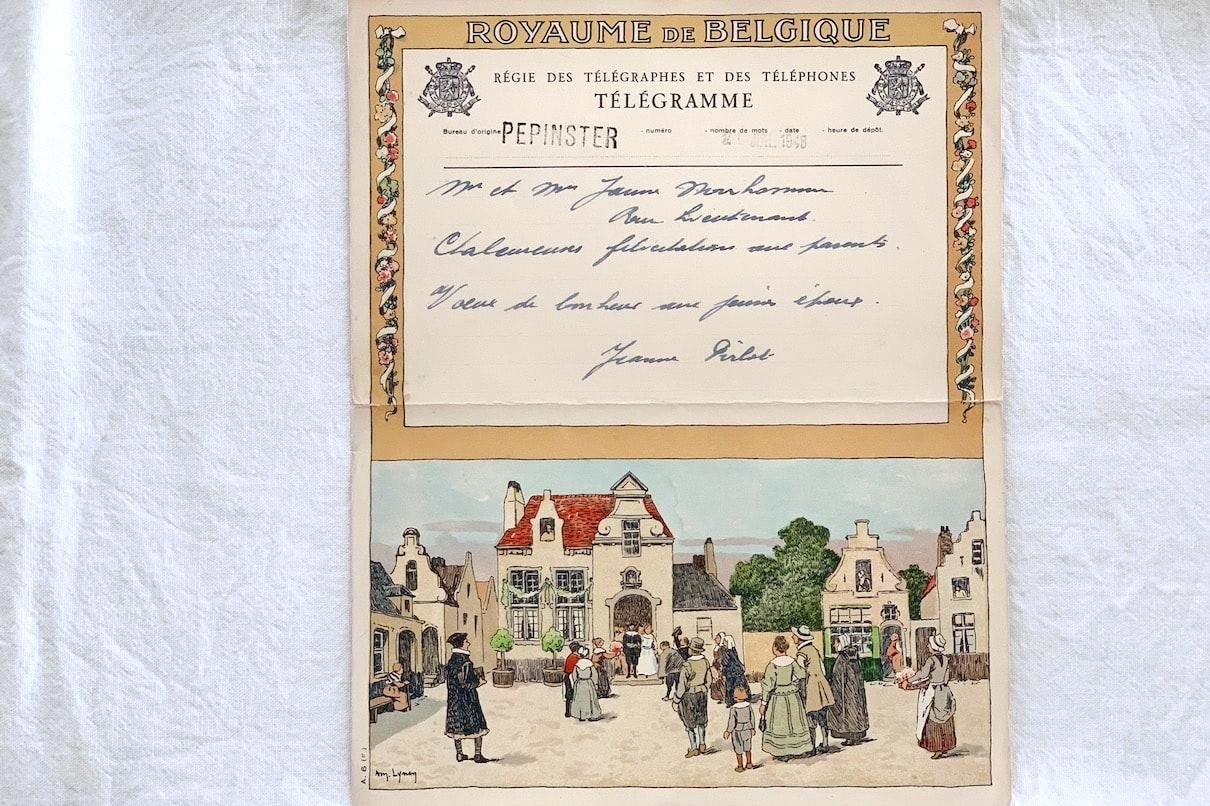 ROYAUME DE BELGIQUE
RÉGIE DES TÉLÉGRAPHES ET DES TÉLÉPHONES
TÉLÉGRAMME
Bureau d'origine PEPINSTER - numéro - nombre de mots - date - heure de dépôt.
1948
Mr et Mme
Rue Lieutenant.
Chaleureuses félicitations aux parents.
Vœux de bonheur aux jeunes époux.
Jeanne Pirlot
A. 6 (F.)
Am. Lynen